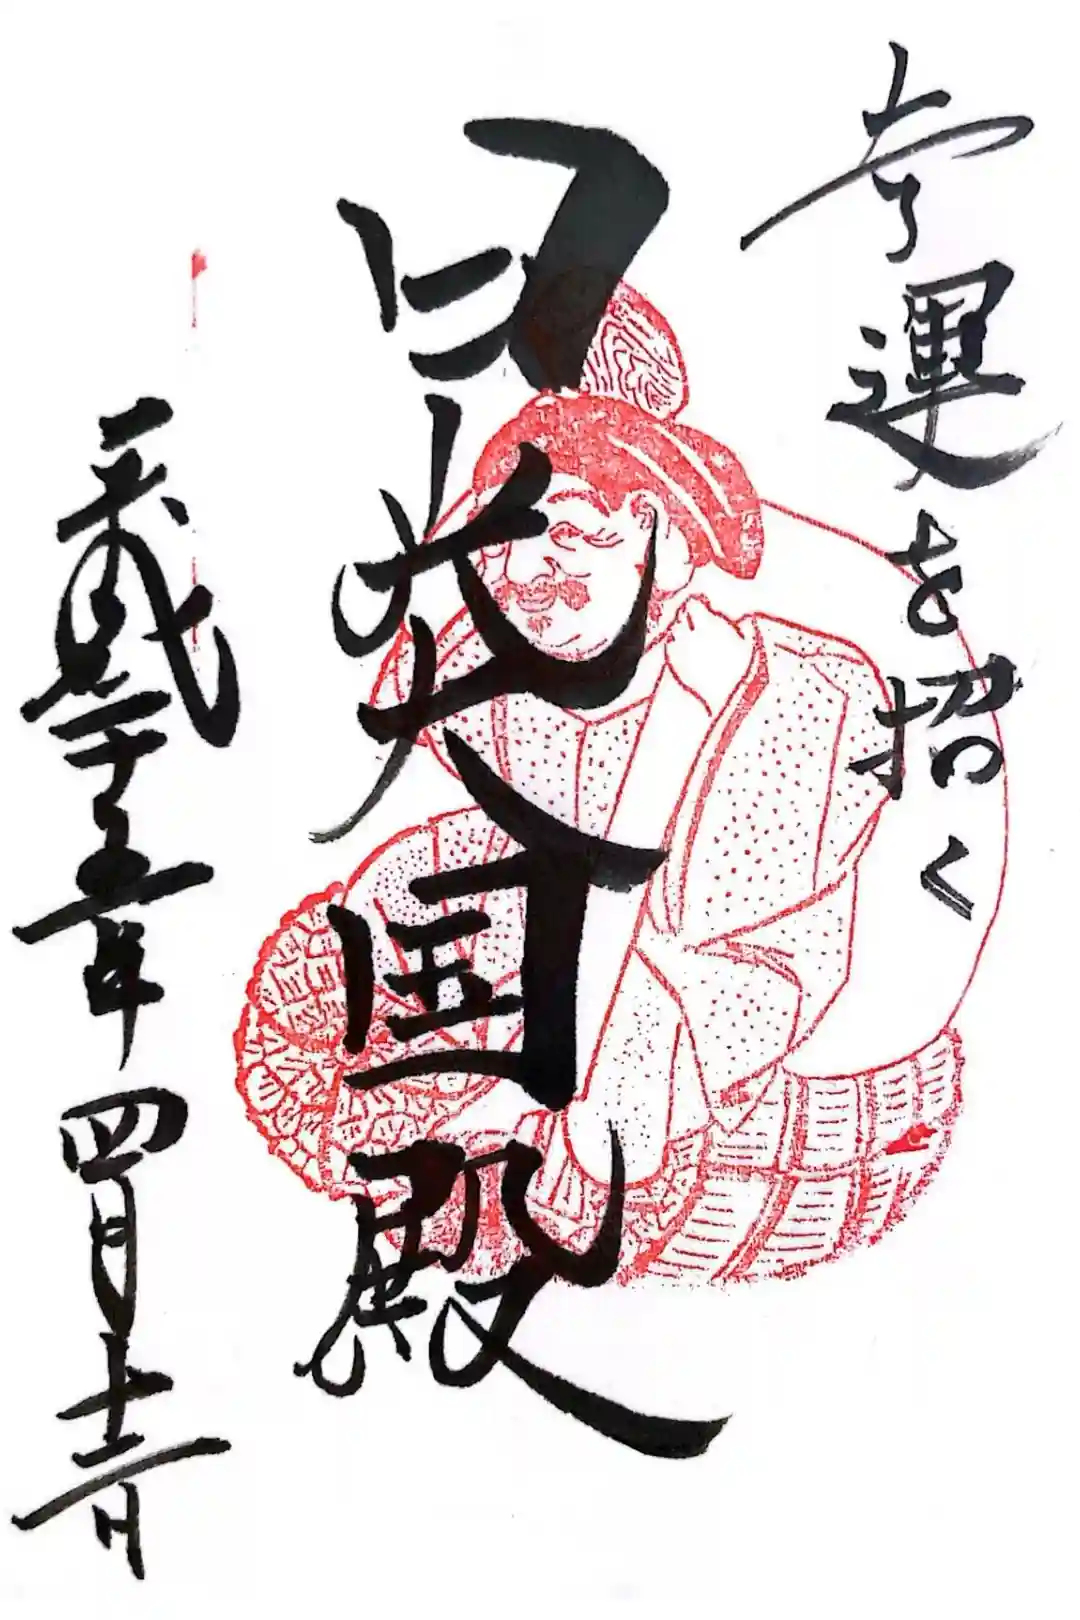 幸運を招く
日光大国殿
平成二十五年四月十二日